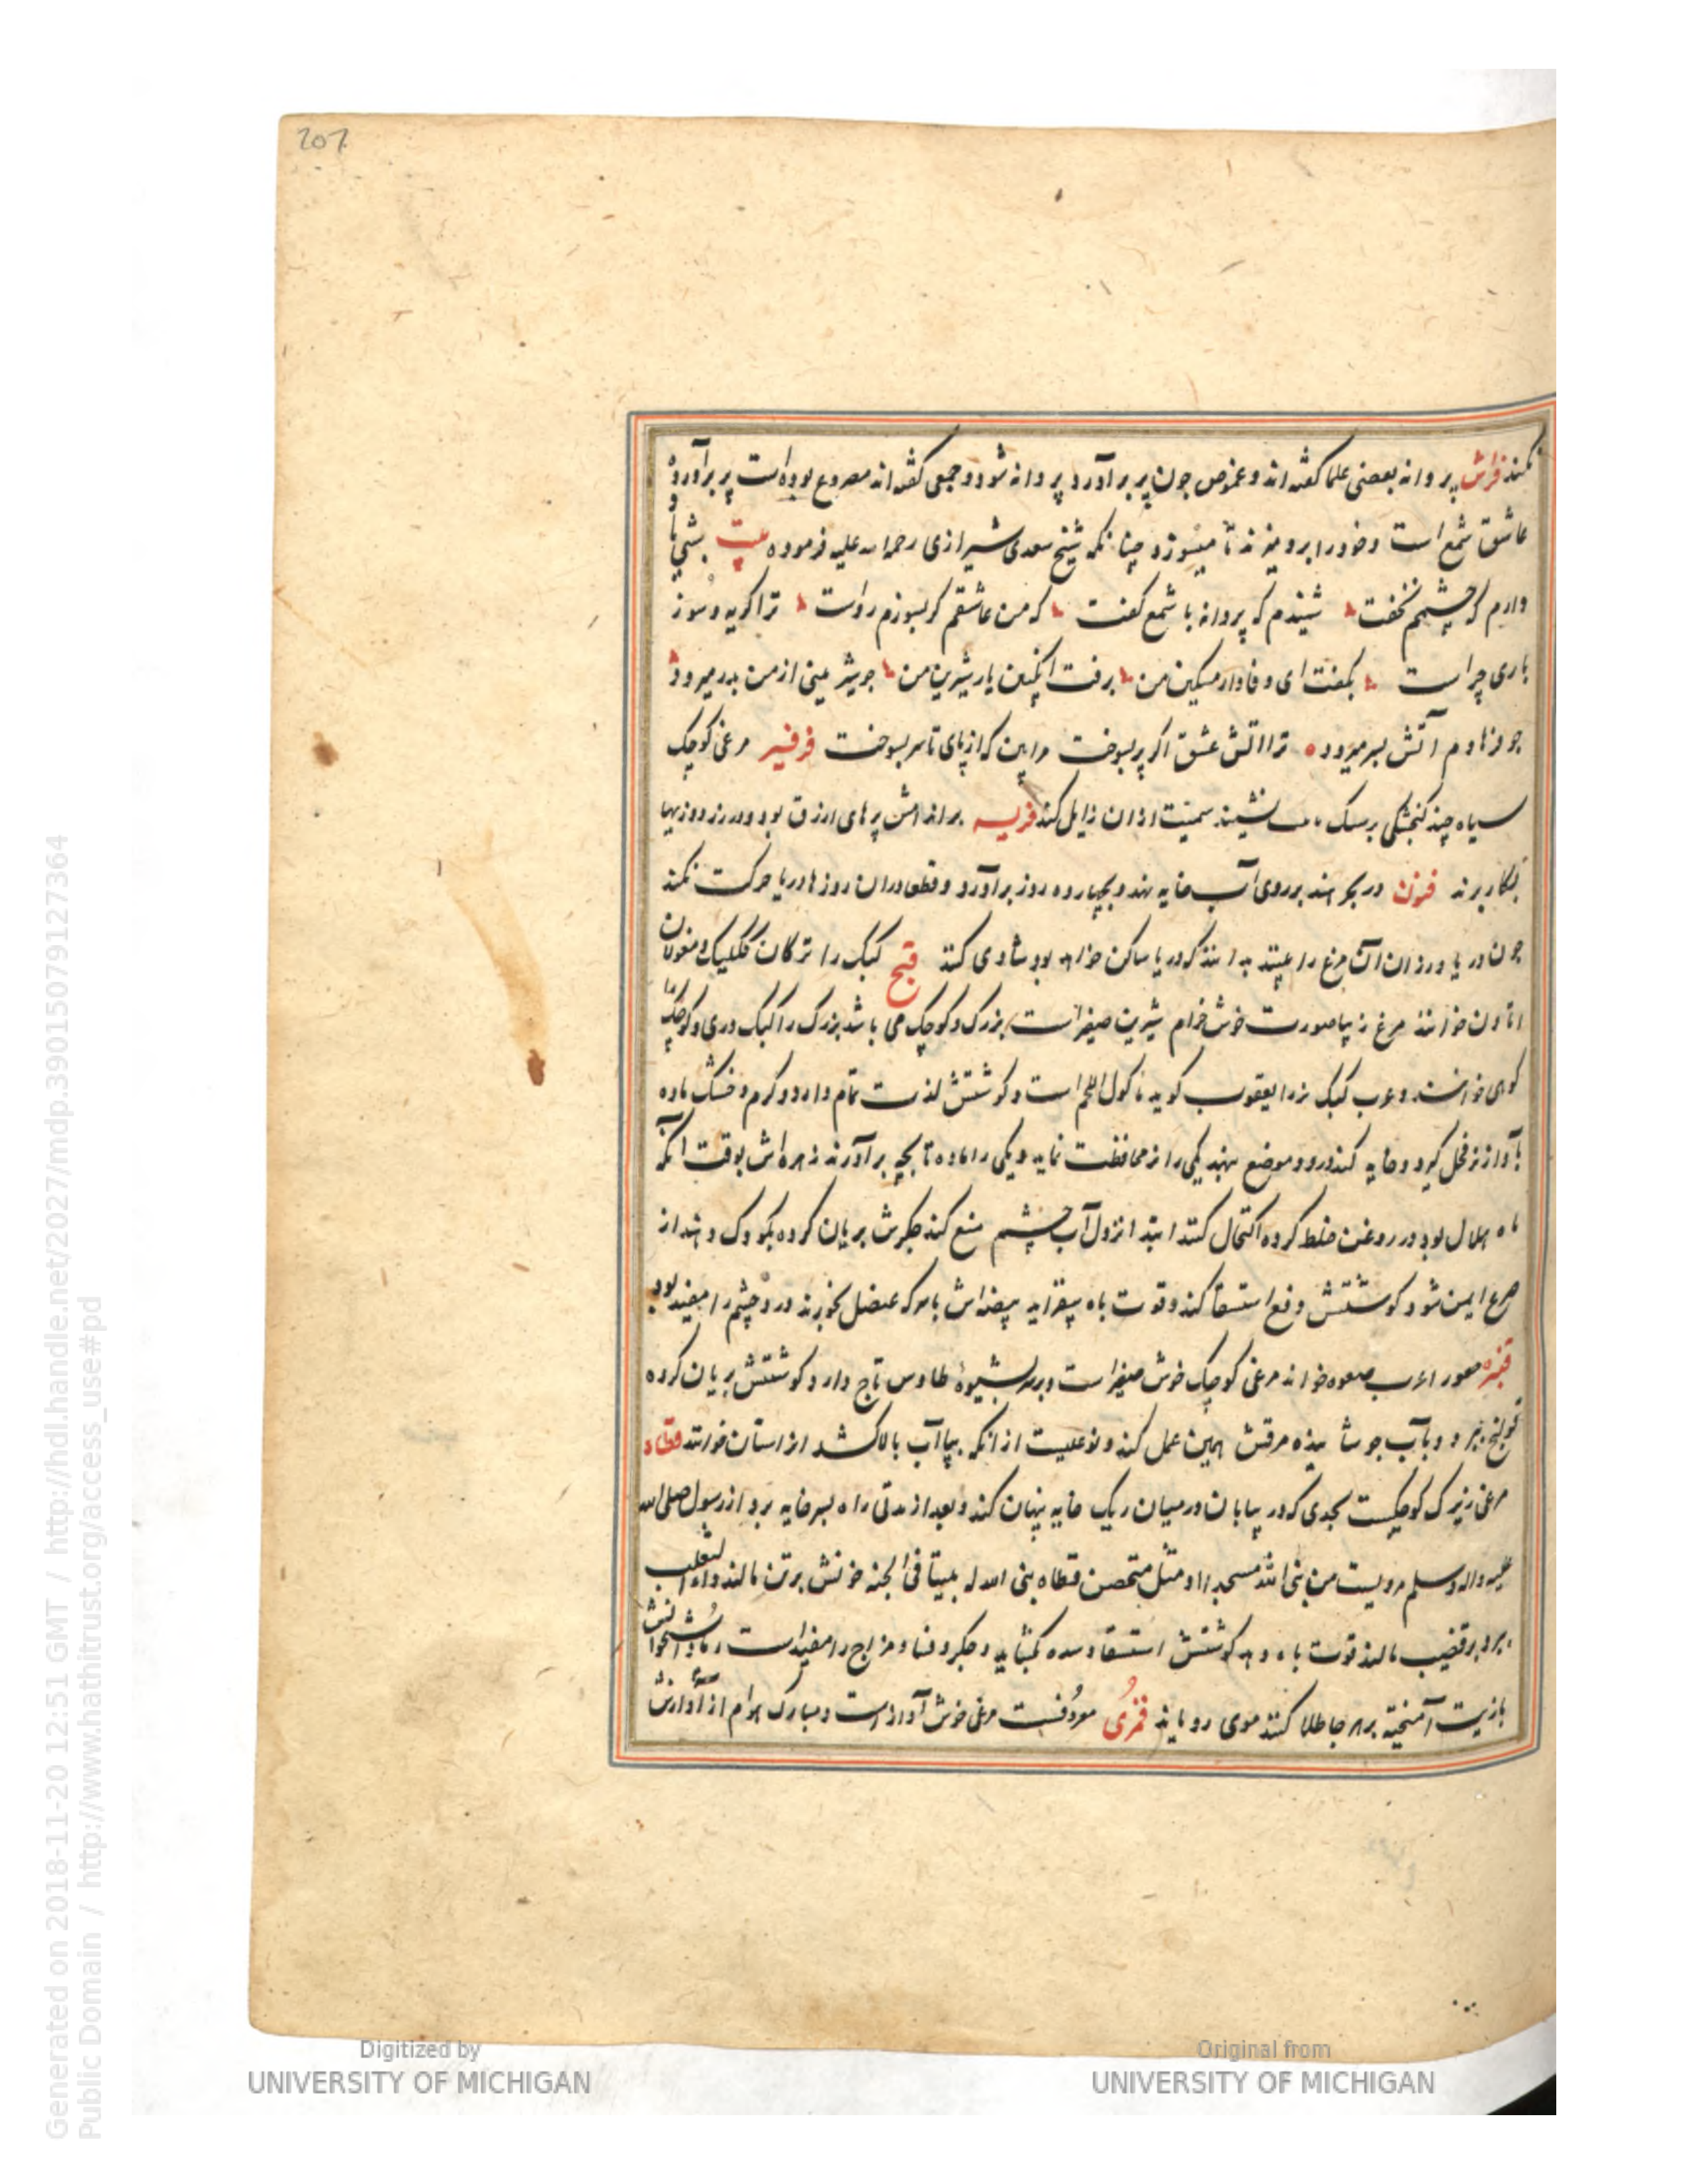 207
کنند فراش پروانه بعضی علما گفته اند دعموص چون پر برآورد پروانه شود و جمعی گفته اند مصروع بوده است پر برآورده و
عاشق شمع است و خود را برو میزند تا میسوزد چنانکه شیخ سعدی شیرازی رحمه الله علیه فرموده بیت شبی یاد
دارم که چشمم نخفت شنیدم که پروانه با شمع گفت که من عاشقم گر بسوزم رواست ترا گریه و سوز
باری چراست بگفت ای وفادار مسکین من برفت انگبین یار شیرین من چو شیرینی از من بدر میرود
چو فرهادم آتش بسر میرود ترا آتش عشق اگر پر بسوخت مرا بین که از پای تا سر بسوخت فرفیر مرغی کوچک
سیاه چند گنجشکی برسک نشیند سمیت از آن زایل کند بر اندامش پرهای ازرق بود و در زردوزیها
بکار برند در بحر هند بر روی آب خایه نهد و بچهارده روز برآورد و قطعا در آن روزها دریا حرکت نکند
چون در یا وردان آن مرغ را بینند بدانند که دریا ساکن خواهد بود شادی کنند قبج کبک را ترکان ککلیک و مغولان
اتاون خوانند مرغ زیبا صورت خوش خرام شیرین صفیر است بزرگ و کوچک می باشد بزرگ را کبک دری و کوچک را
کوهی خوانند و عرب کبک نر را یعقوب گوید ماکول اللحم است و گوشتش لذت تمام دارد و گرم و خشک ماده
بآواز نر فحل گیرد و خایه کند و در دو موضع بنهد یکی را نر محافظت نماید و یکی را ماده تا بچه برآورند زهره اش بوقت آنکه
ماه هلال بود در روغن خلط کرده اکتحال کنند ابتدا نزول آب چشم منع کند جگرش بریان کرده بکودک دهند از
صرع ایمن شود گوشتش دفع استسقا کند و قوت باه بیفزاید بیضه اش با سرکه عنصل بخورند درد چشم را مفید بود
قنبره عرب صعوه خواند مرغی کوچک خوش صفیر است و بر سر بشیوه طاوس تاج دارد گوشتش بریان کرده
قولنج ببرد و بآب جوشانیده مرقش همین عمل کند و نوعیست از آنکه بپا آب بالا کشد از استان خورند قطاه
مرغی زیرک کوچکیست بحدی که در بیابان در میان ریگ خایه پنهان کند و بعد از مدتی راه بسر خایه برد از رسول صلی الله
علیه و اله و سلم مرویست من بنی لله مسجدا و مثل متحصن قطاه بنی الله له بیتا فی الجنه خونش بر تن مالند داء الثعلب
ببرد بر قضیب مالند قوت باه دهد گوشتش استسقا و سده بگشاید و جگر و فساد مزاج را مفید است رماد استخوانش
بازیت آمیخته بر هر جا طلا کنند موی رویاند قمری معروفست مرغی خوش آواز است و مبارک هوام از آوازش
Digitized by
UNIVERSITY OF MICHIGAN
Original from
UNIVERSITY OF MICHIGAN
Generated on 2018-11-20 12:51 GMT / http://hdl.handle.net/2027/mdp.39015079127364
Public Domain / http://www.hathitrust.org/access_use#pd